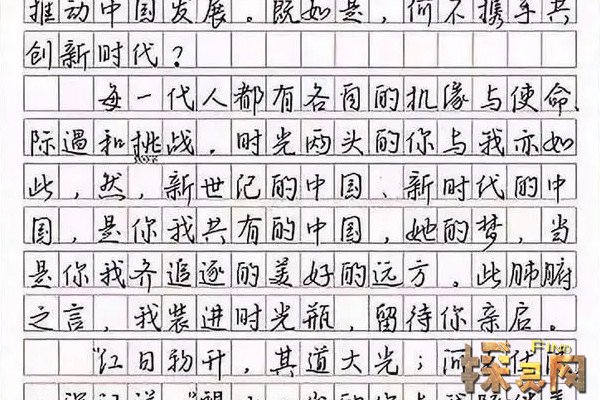 推动中国发展。既如是，何不携手共
创新时代？
每一代人都有各自的机缘与使命、
际遇和挑战。时光两头的你与我亦如
此，然，新世纪的中国、新时代的中
国，是你我共有的中国，她的梦，当
是你我齐追逐的美好的远方。此肺腑
之言，我装进时光瓶，留待你亲启。
"红日初升，其道大光；河
Find
探灵网